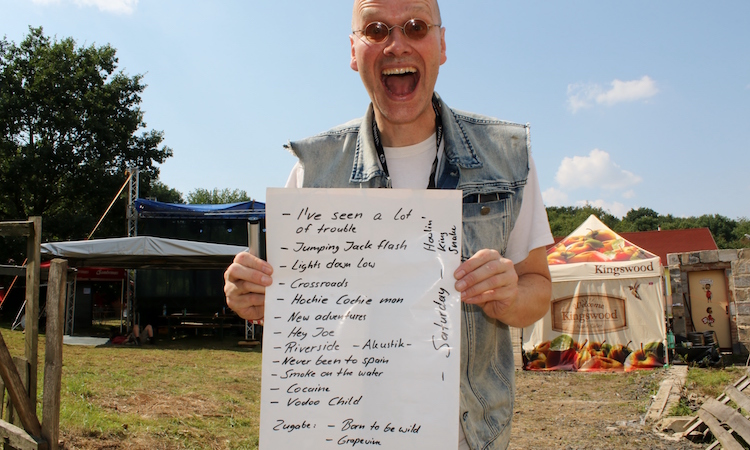 - I've seen a lot
of trouble
- Jumping Jack flash
- Lights down low
- Crossroads
- Hochie Cochie man
- New adventures
- Hey Joe
- Riverside - Akustik -
- Never been to spain
- Smoke on the water
- Cocaine
- Vodoo Child
Zugabe: - Born to be wild
- Grapevine
- Saturday -
Howlin'
King
Snake
Kingswood
Welcome
Kingswood